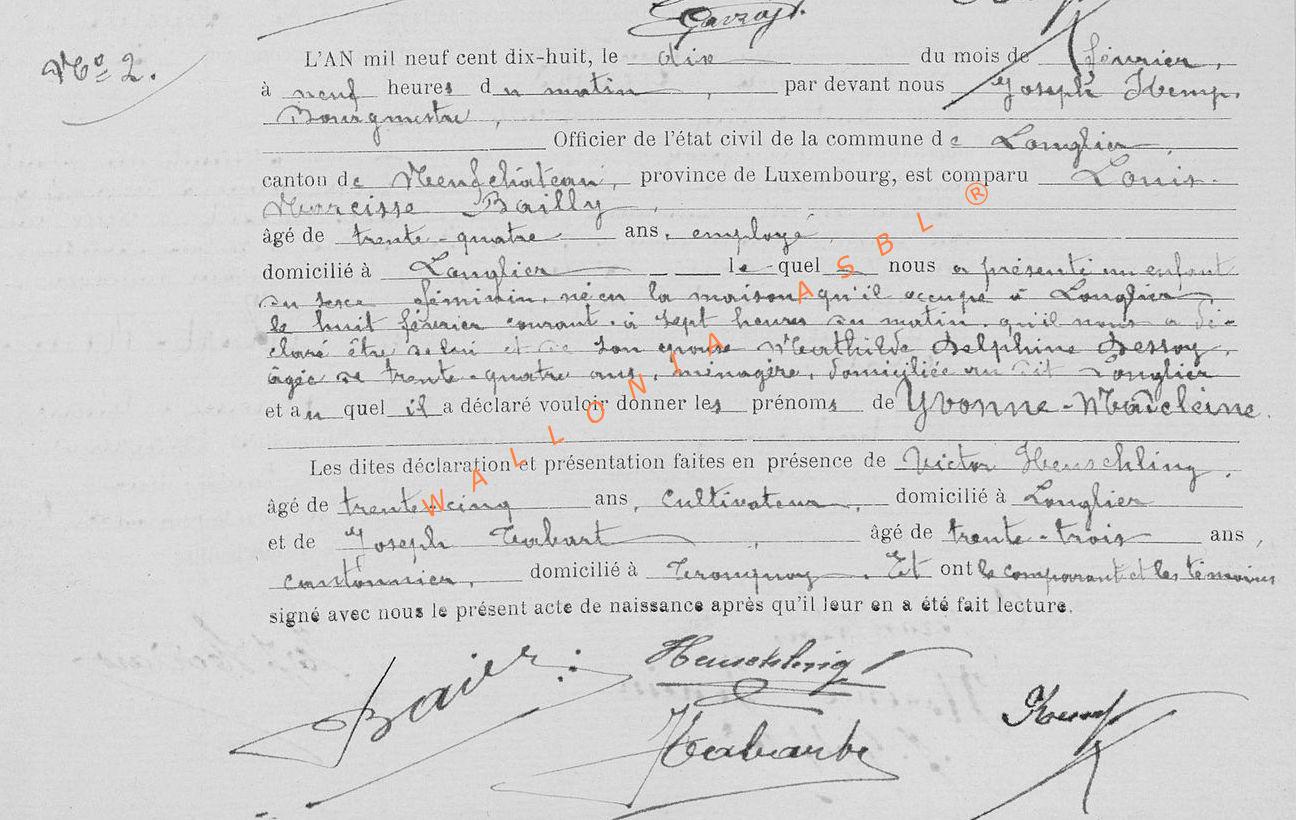 Gavroy.
No 2.
L'AN mil neuf cent dix-huit, le dix du mois de février,
à neuf heures du matin, par devant nous Joseph Kemp,
Bourgmestre,
Officier de l'état civil de la commune de Longlier,
canton de Neufchâteau, province de Luxembourg, est comparu Louis
Narcisse Bailly,
âgé de trente-quatre ans, employé,
domicilié à Longlier lequel nous a présenté un enfant
du sexe féminin, né en la maison qu'il occupe à Longlier,
le huit février courant, à sept heures du matin, qu'il nous a dé-
claré être de lui et de son épouse Mathilde Delphine Dessoy,
âgée de trente-quatre ans, ménagère, domiciliée au dit Longlier
et au quel il a déclaré vouloir donner les prénoms de Yvonne-Madeleine.
Les dites déclaration et présentation faites en présence de Victor Heuschling,
âgé de trente-cinq ans, cultivateur, domicilié à Longlier
et de Joseph Habart, âgé de trente-trois ans,
cantonnier, domicilié à Tronquoy. Et ont le comparant et les témoins
signé avec nous le présent acte de naissance après qu'il leur en a été fait lecture.
Heuschling
Kemp
WALLONIA ASBL ®